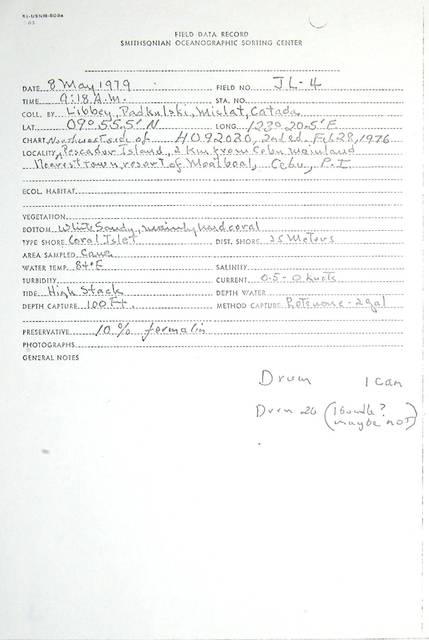 SI-USNM-808a
FIELD DATA RECORD
SMITHSONIAN OCEANOGRAPHIC SORTING CENTER
DATE 8 May 1979 FIELD NO. JL-4
TIME 9:18 A.M. STA. NO.
COLL. BY Libbey, Padkulski, Miclat, Catada
LAT. 09° 55.5' N LONG. 123° 20.5' E
CHART Northwest side of HO92030, 2nd ed. Feb 28, 1976
LOCALITY Pescador Island, 2 km from Cebu mainland
Nearest town, resort of Moalboal, Cebu, P.I.
ECOL. HABITAT
VEGETATION
BOTTOM White Sandy, mainly hard coral
TYPE SHORE Coral Islet DIST. SHORE 25 Meters
AREA SAMPLED Cave
WATER TEMP. 84°F SALINITY
TURBIDITY CURRENT 0.5-0 knots
TIDE High Slack DEPTH WATER
DEPTH CAPTURE 100 Ft. METHOD CAPTURE Rotenone - 2 gal
PRESERVATIVE 10% formalin
PHOTOGRAPHS
GENERAL NOTES
Drum 1 can
Drum 26 (1 bundle?
maybe not)